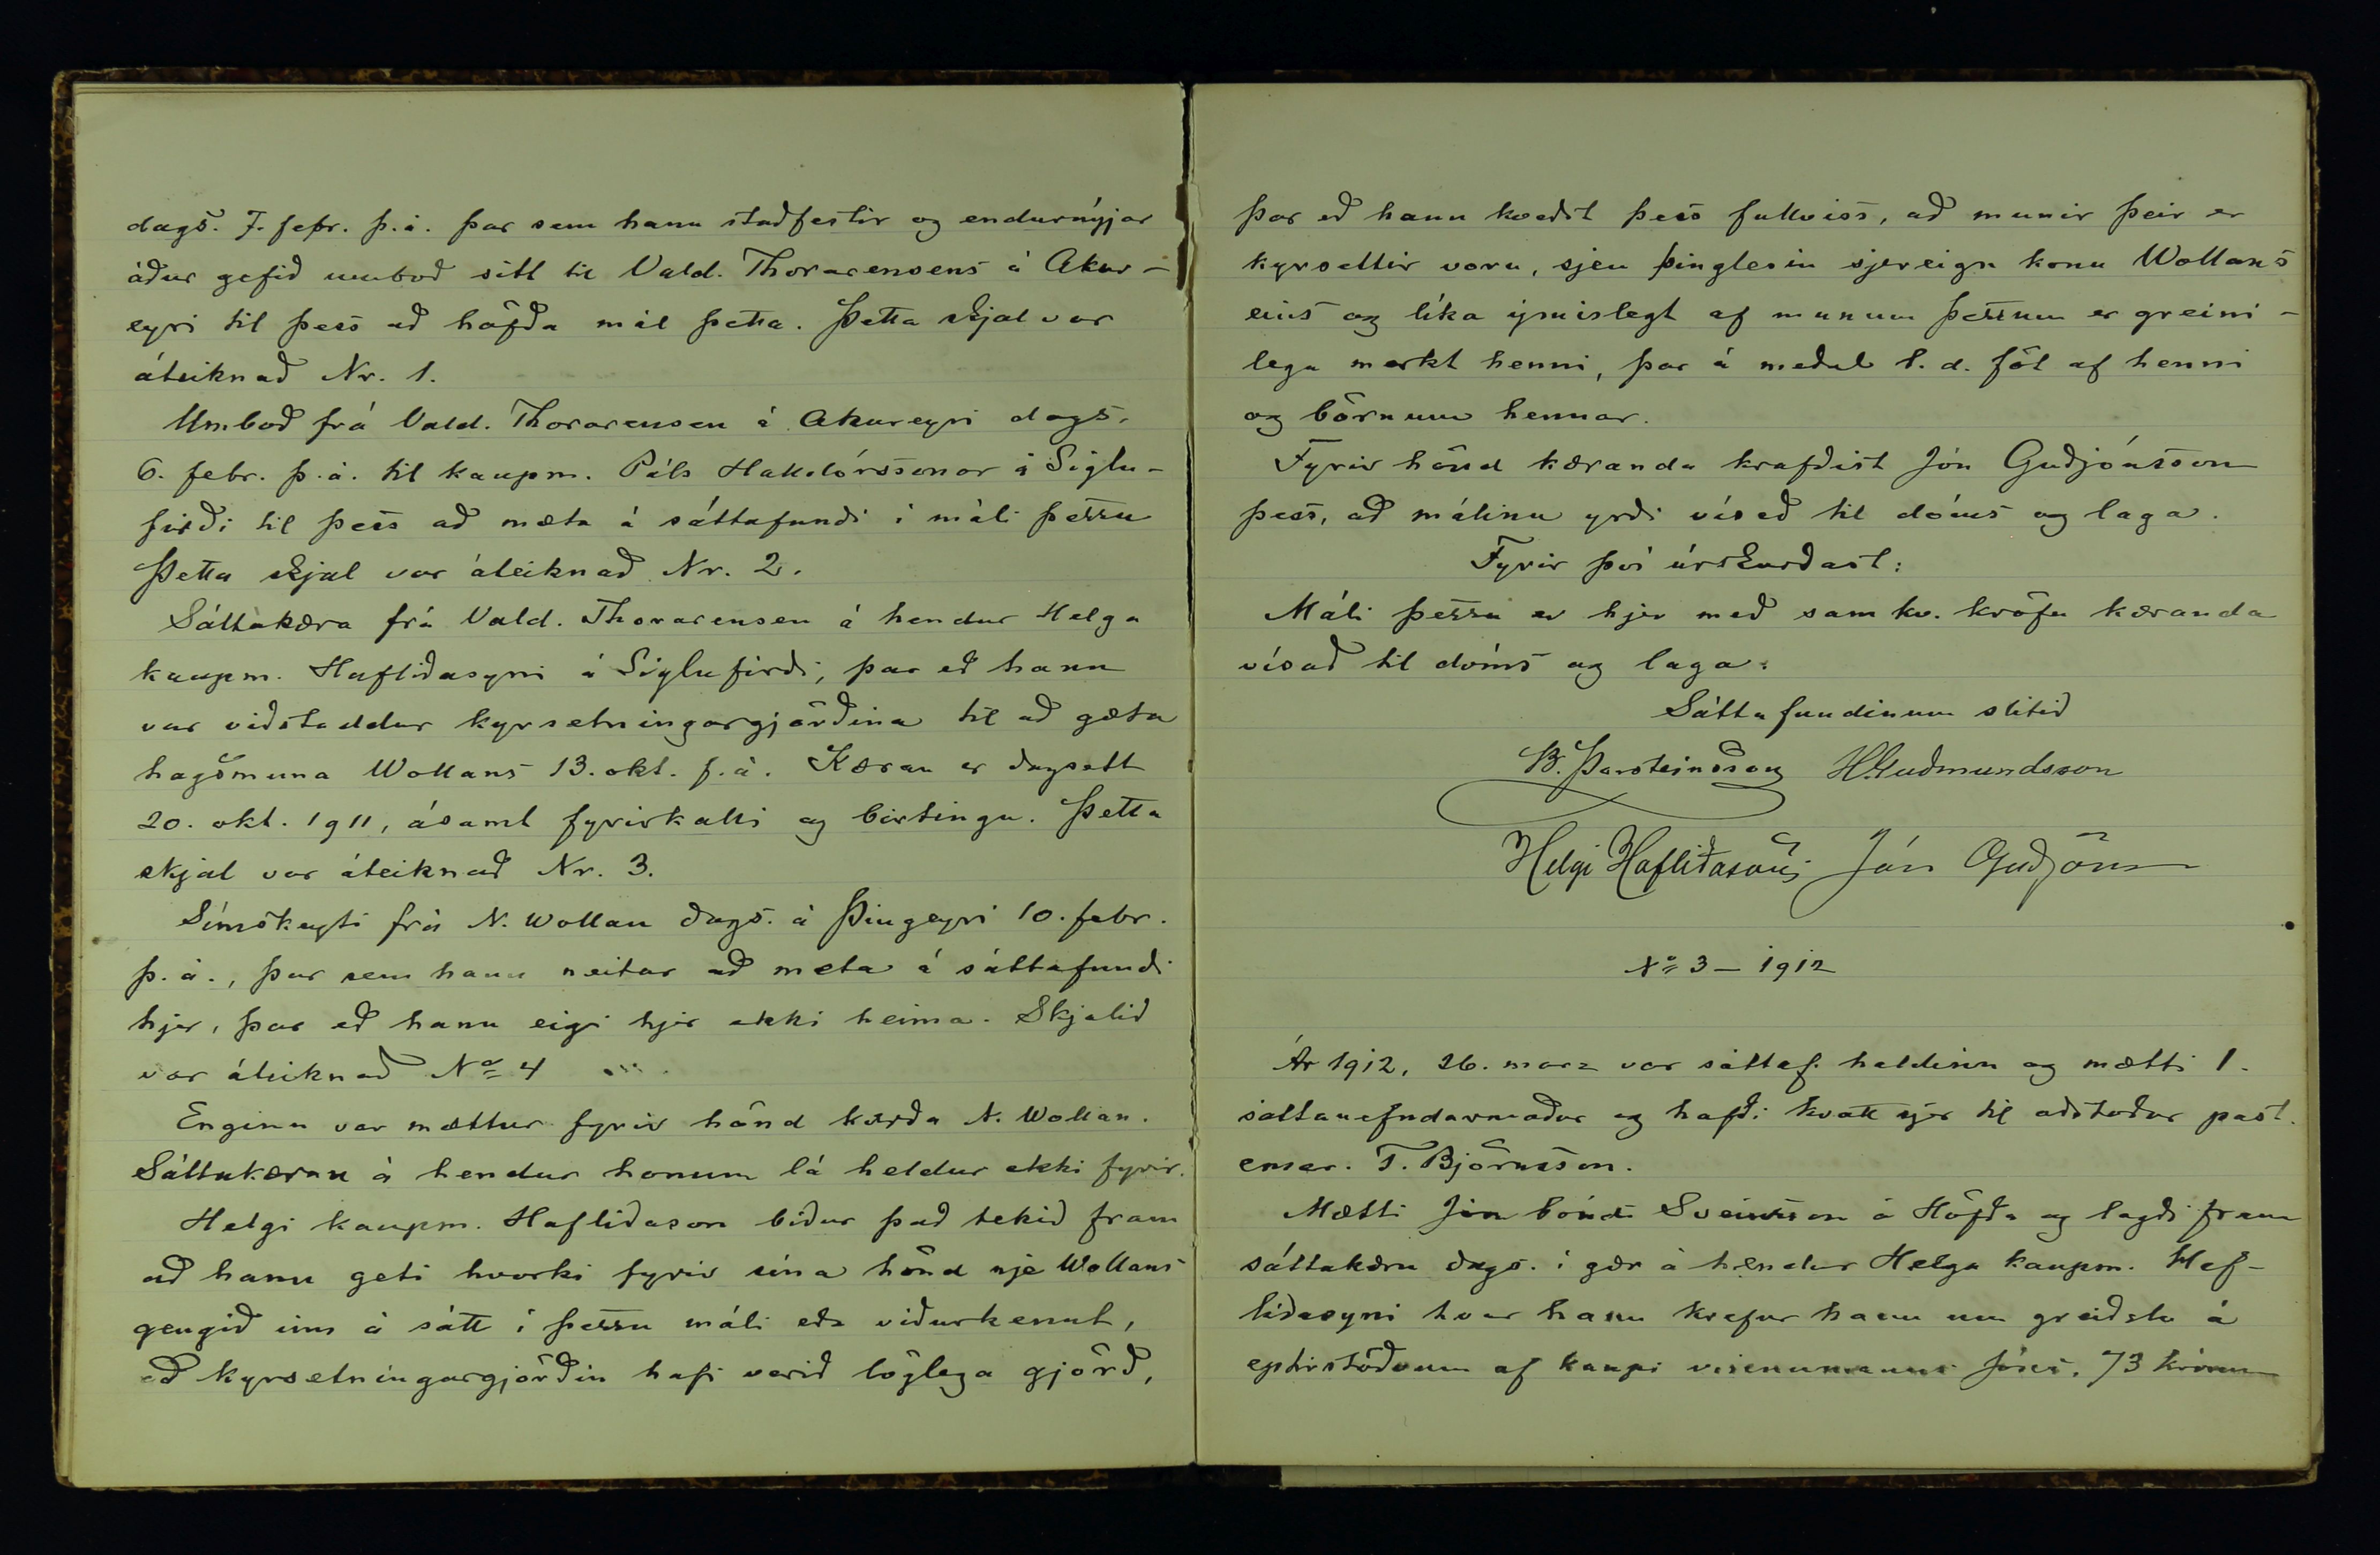 dags. 7. febr. þ.á. þar sem hann staðfestir og endurnýjar
áður gefið umboð sitt til Vald. Thorarensens á Akur-
eyri til þess að höfða mál þetta. Þetta skjal var
áteiknað Nr. 1.
Umboð frá Vald. Thorarensen á Akureyri dags.
6. febr. þ.á. til kaupm. Páls Halldórssonar á Siglu-
firði til þess að mæta á sáttafundi í máli þessu
Þetta skjal var áteiknað Nr. 2.
Sáttakæra frá Vald. Thorarensen á hendur Helga
kaupm. Hafliðasyni á Siglufirði, þar eð hann
var viðstaddur kyrsetningargjörðina til að gæta
hagsmuna Wollans 13. okt. f.á. Kæran er dagsett
20. okt. 1911, ásamt fyrirkalli og birtingu. Þetta
skjal var áteiknað Nr. 3.
Símskeyti frá N. Wollan dags. á Þingeyri 10. febr.
þ.á., þar sem hann neitar að mæta á sáttafundi
hjer, þar eð hann eigi hjer ekki heima. Skjalið
var áteiknað No 4
Enginn var mættur fyrir hönd kærða N. Wollan.
Sáttakæran á hendur honum lá heldur ekki fyrir.
Helgi kaupm. Hafliðason biður það tekið fram
að hann geti hvorki fyrir sína hönd nje Wollans
gengið inn á sátt í þessu máli eða viðurkennt,
að kyrsetningargjörðin hafi verið löglega gjörð,
þar eð hann kveðst þess fullviss, að munir þeir er
kyrsettir voru, sjeu þinglesin sjereign konu Wollans
eins og líka ýmislegt af munum þessum er greini-
lega merkt henni, þar á meðal t.d. föt af henni
og börnum hennar.
Fyrir hönd kæranda krafðist Jón Guðjónsson
þess, að málinu yrði vísað til dóms og laga.
Fyrir því úrskurðast:
Máli þessu er hjer með samkv. kröfu kæranda
vísað til dóms og laga.
Sáttafundinum slitið
B. Þorsteinsson H. Guðmundsson
Helgi Hafliðason Jón Guðjóns
No 3 – 1912
Ár 1912, 26. marz var sáttaf. haldinn og mætti 1.
sáttanefndarmaður og hafði kvatt sjer til aðstoðar past.
emer. T. Björnsson.
Mætti Jón bóndi Sveinsson á Höfða og lagði fram
sáttakæru dags. í gær á hendur Helga kaupm. Haf-
liðasyni hvar hann krefur hann um greiðslu á
eptirstöðvum af kaupi vinnumanns Jóns, 73 krónum